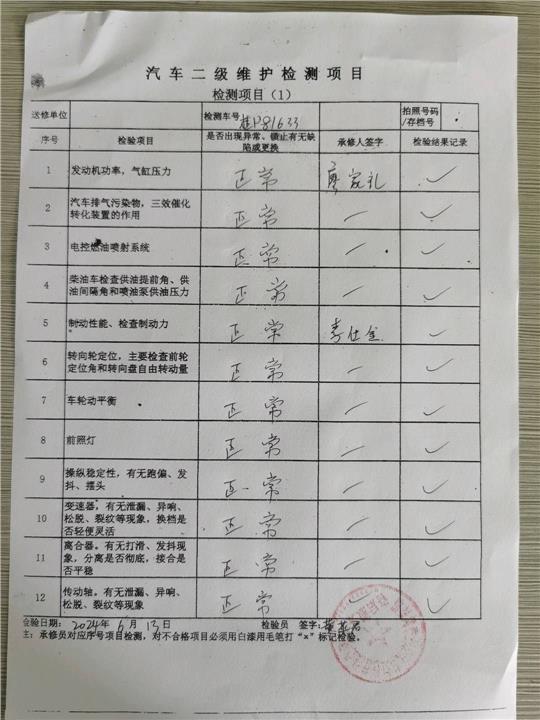 汽车二级维护检测项目
检测项目（1）
送修单位 检测车号 桂P81633 拍照号码/存档号
序号 检验项目 是否出现异常、锁止有无缺陷或更换 承修人签字 检验结果记录
1 发动机功率，气缸压力 正常 廖家礼 ✓
2 汽车排气污染物，三效催化转化装置的作用 正常 一 ✓
3 电控燃油喷射系统 正常 一 ✓
4 柴油车检查供油提前角、供油间隔角和喷油泵供油压力 正常 一 ✓
5 制动性能、检查制动力 正常 李仕金 ✓
6 转向轮定位，主要检查前轮定位角和转向盘自由转动量 正常 一 ✓
7 车轮动平衡 正常 一 ✓
8 前照灯 正常 一 ✓
9 操纵稳定性，有无跑偏、发抖、摆头 正常 一 ✓
10 变速器。有无泄漏、异响、松脱、裂纹等现象，换档是否轻便灵活 正常 一 ✓
11 离合器。有无打滑、发抖现象，分离是否彻底，接合是否平稳 正常 一 ✓
12 传动轴。有无泄漏、异响、松脱、裂纹等现象 正常 ✓
检验日期：2024年6月13日 检验员 签字：
注：承修员对应序号项目检测，对不合格项目必须用白漆用毛笔打“×”标记检验。